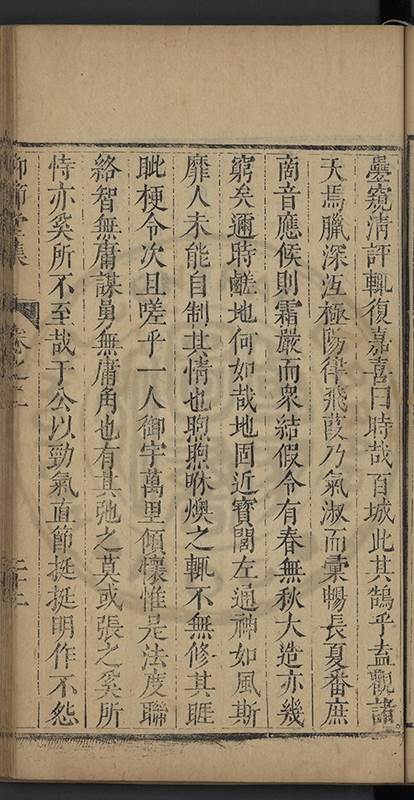 曡窺清評輒復嘉喜曰時哉百城此其鵠乎盍觀諸
天焉臘深沍極陽律飛葭乃氣淑而彙暢長夏番庶
商音應候則霜嚴而衆結假令有春無秋大造亦幾
窮矣邇時鹺地何如哉地固近寶閭左通神如風斯
靡人未能自制其情也煦煦咻燠之輒不無修其睚
眦梗令次且嗟乎一人御宇萬里傾懷惟是法度聯
絡智無庸謀勇無庸角也有其弛之莫或張之奚所
恃亦奚所不至哉于公以勁氣直節挺挺明作不怨
仰節堂集 卷之二 二十二